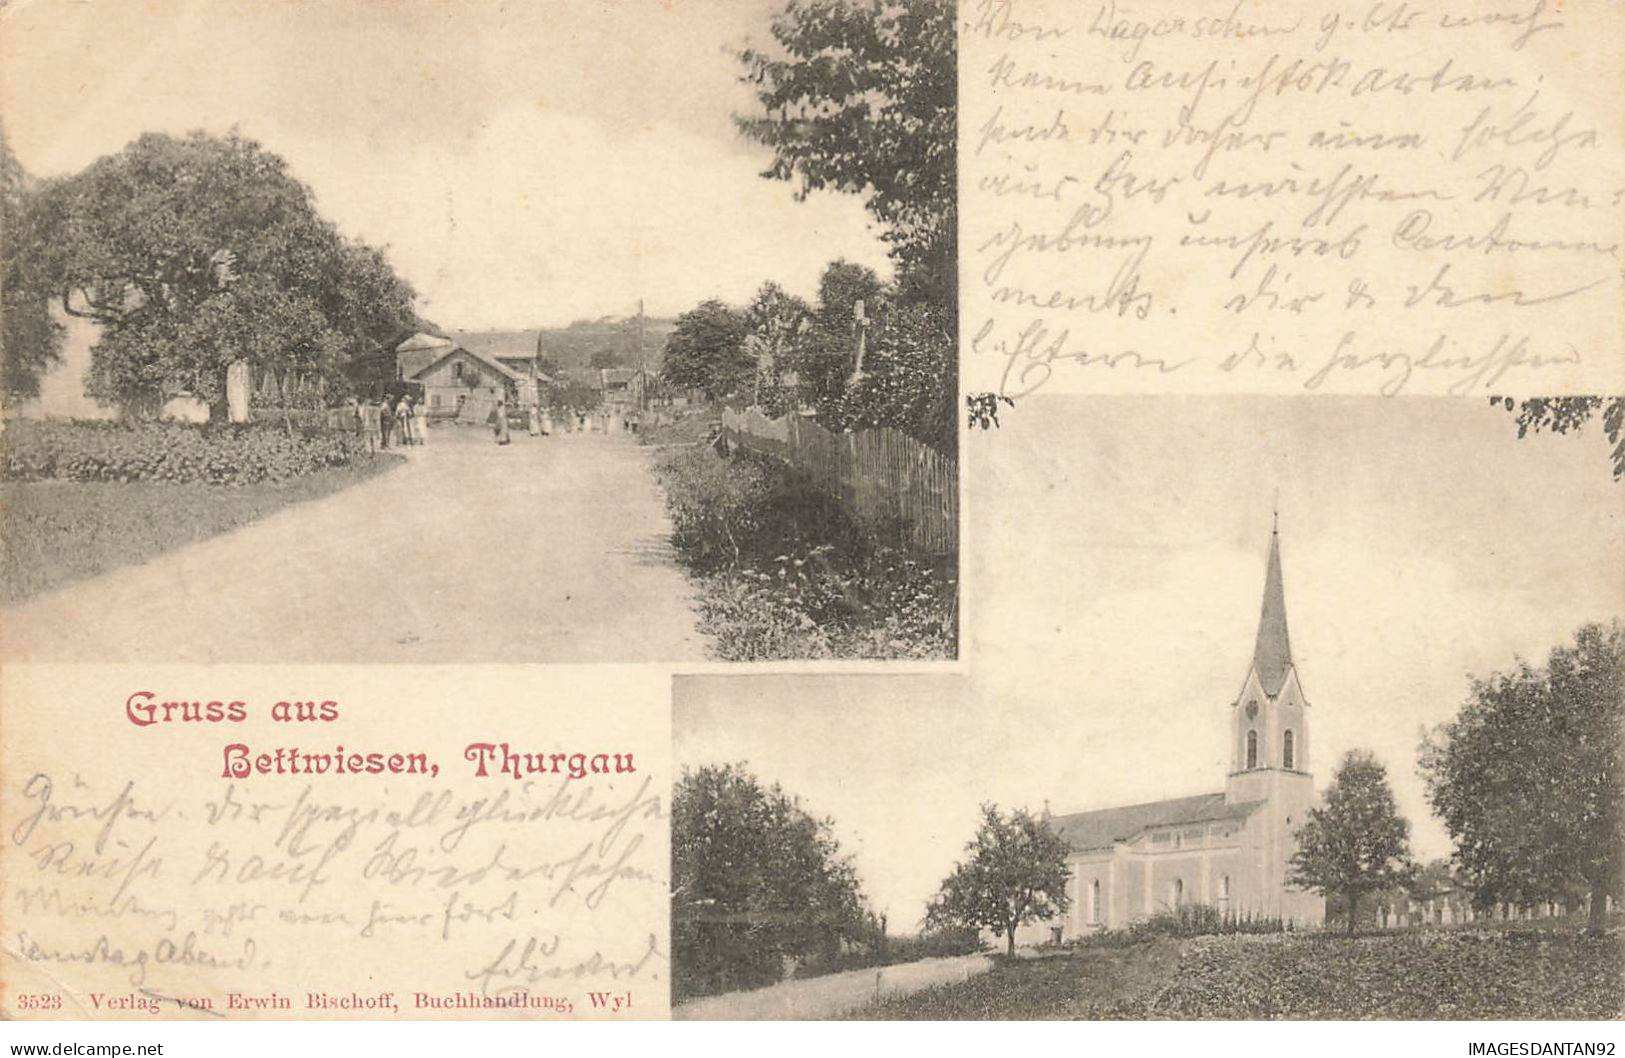 Von Wägerschen gibts noch
keine Ansichtskarten,
sende dir daher eine solche
aus der nächsten Um-
gebung unseres Cantonne-
ments. Dir & den
l. Eltern die herzlichsten
Gruss aus
Bettwiesen, Thurgau
Grüsse. Dir speziell glückliche
Reise & auf Wiedersehen.
Montag gehts von hier fort.
Samstag Abend.
Eduard.
3523 Verlag von Erwin Bischoff, Buchhandlung, Wyl
delcampe.net
IMAGESDANTAN92